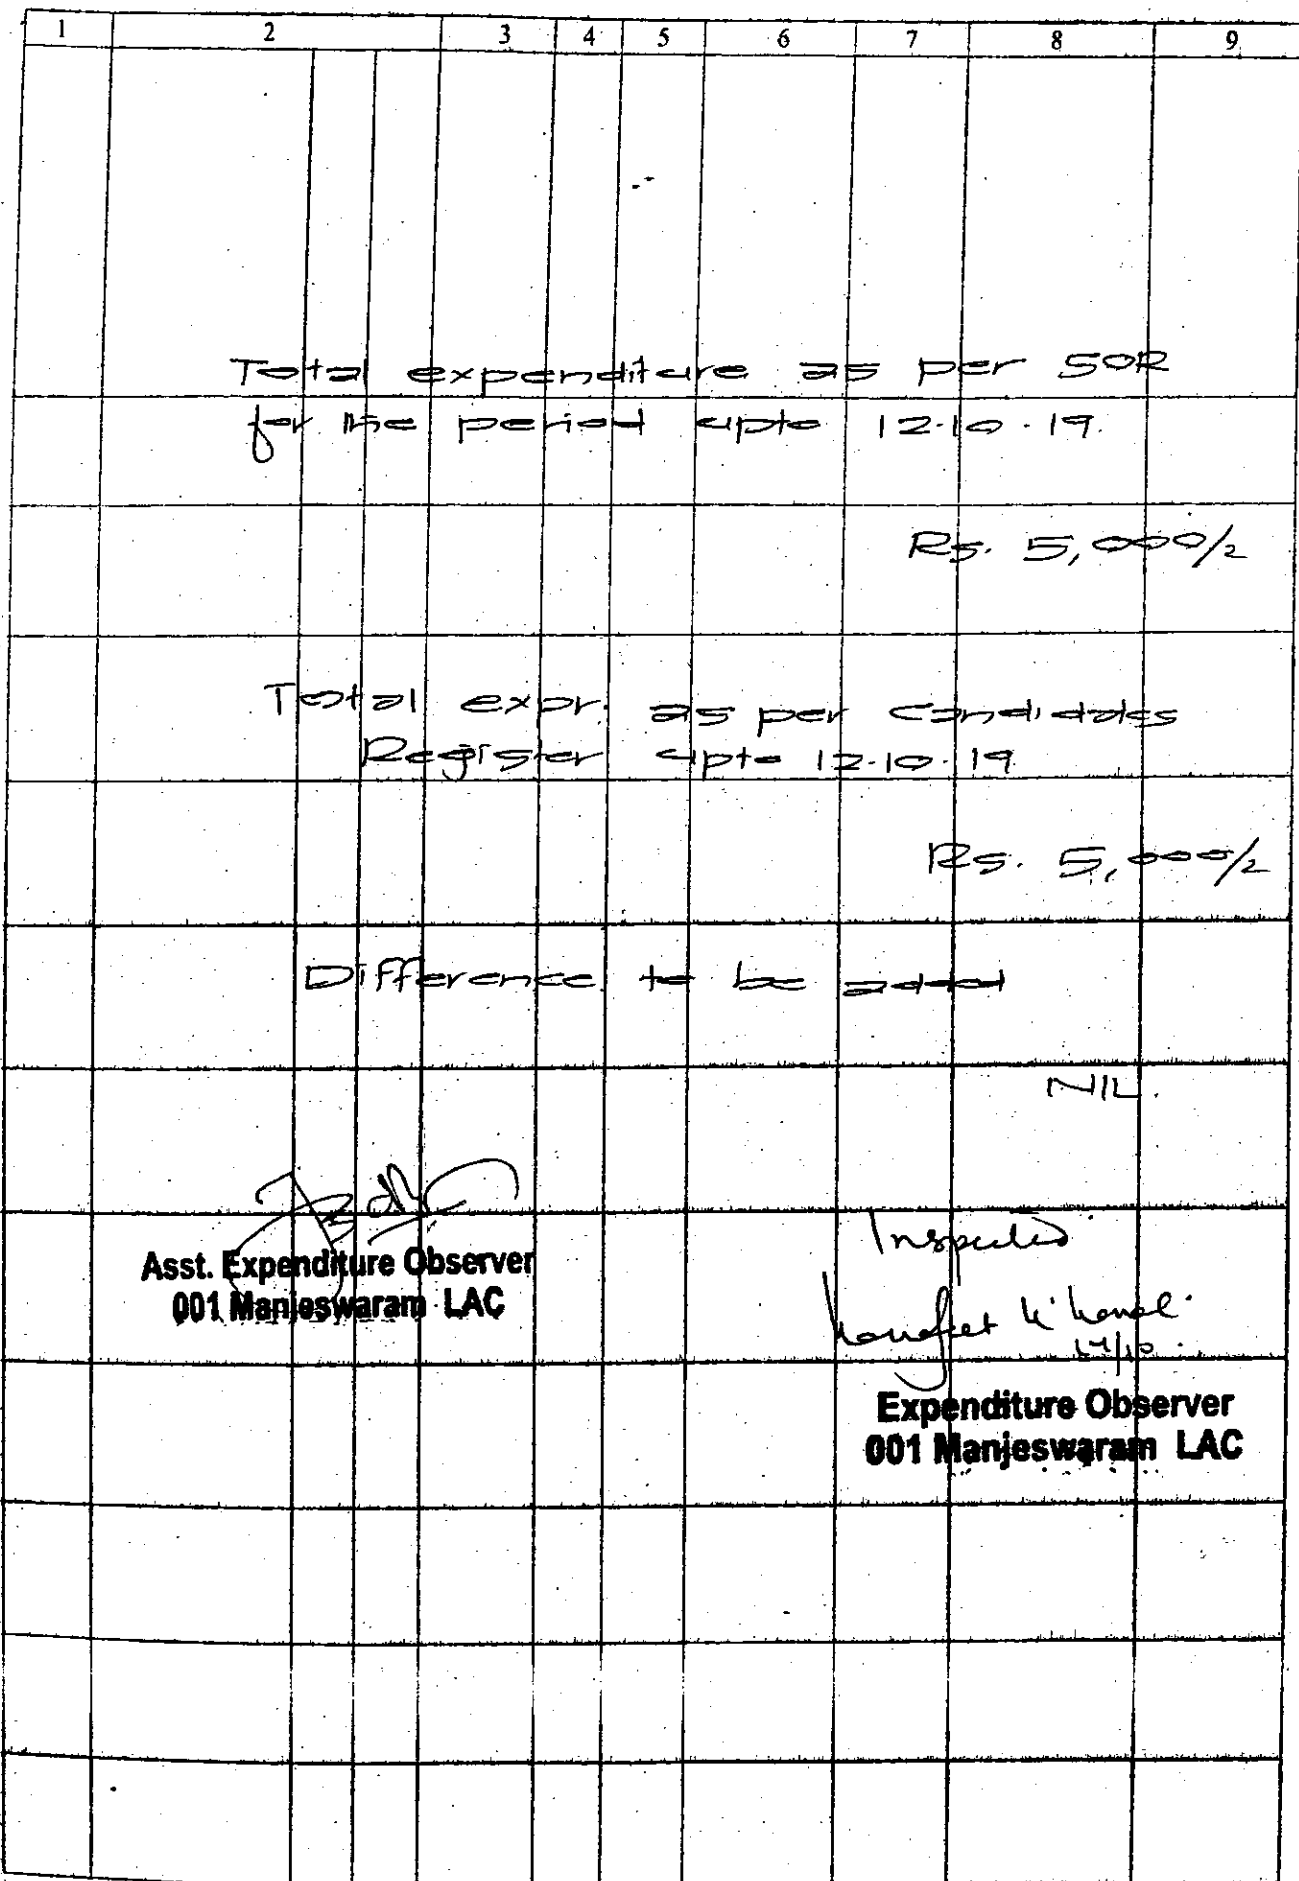 1 2 3 4 5 6 7 8 9
Total expenditure as per SOR
for the period upto 12.10.19.
Rs. 5,000/2
Total expr. as per Candidates
Register upto 12.10.19
Rs. 5,000/2
Difference to be added
NIL.
Asst. Expenditure Observer
001 Manjeswaram LAC
Inspected
Expenditure Observer
001 Manjeswaram LAC